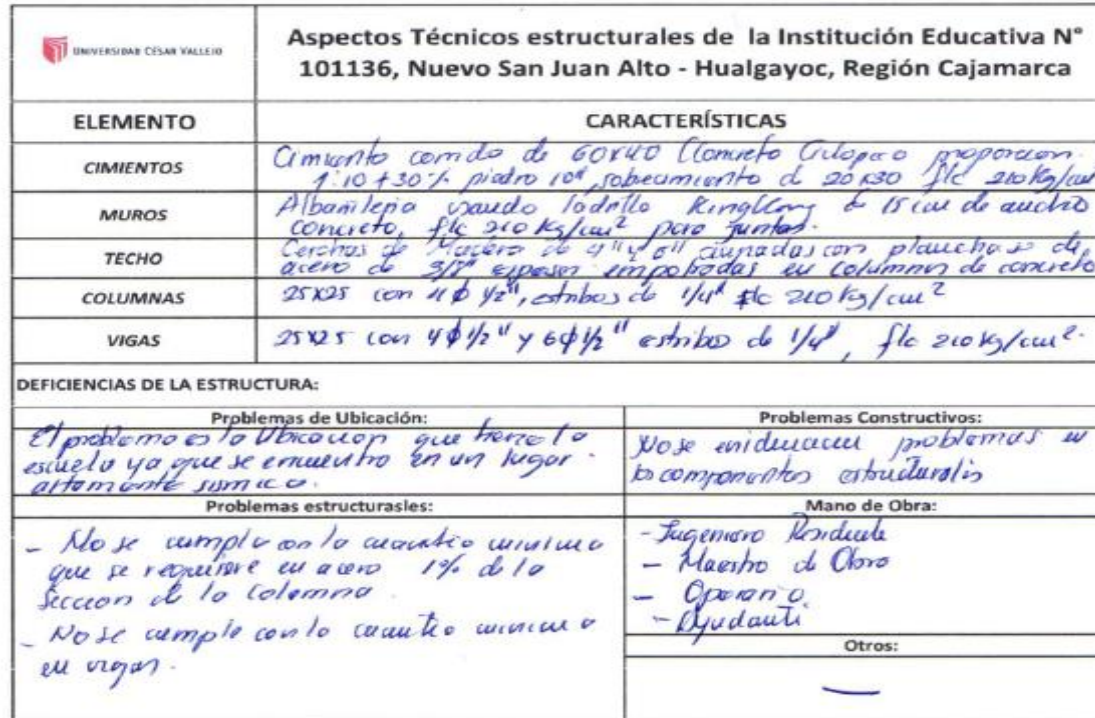 UNIVERSIDAD CÉSAR VALLEJO
Aspectos Técnicos estructurales de la Institución Educativa N°
101136, Nuevo San Juan Alto - Hualgayoc, Región Cajamarca
ELEMENTO
CARACTERÍSTICAS
CIMIENTOS
Cimiento corrido de 60x40 (Concreto Ciclopeo proporcion
1:10 + 30% piedra 10", sobrecimiento d 20x30 f'c 210 Kg/cm
MUROS
Albañileria usando ladrillo KingKong d 15 cm de ancho
concreto, f'c 210 Kg/cm² para juntas.
TECHO
Cerchas de Madera de 4" y 6" con planchas de
acero de 3/8" espesor empotradas en columnas de concreto
COLUMNAS
25x25 con 4 ϕ 1/2", estribos de 1/4" f'c 210 Kg/cm²
VIGAS
25x25 con 4ϕ1/2" y 6ϕ1/2" estribos de 1/4", f'c 210 Kg/cm².
DEFICIENCIAS DE LA ESTRUCTURA:
Problemas de Ubicación:
El problema es la Ubicacion que tiene la
escuela ya que se encuentra en un lugar
altamente sismico.
Problemas Constructivos:
No se evidencian problemas en
los componentes estructurales
Problemas estructurasles:
- No se cumple con la cuantia minima
que se requiere en acero 1% de la
Seccion de la Columna
- No se cumple con la cuantia minima
en vigas.
Mano de Obra:
- Ingeniero Residente
- Maestro de Obra
- Operario
- Ayudante
Otros:
—